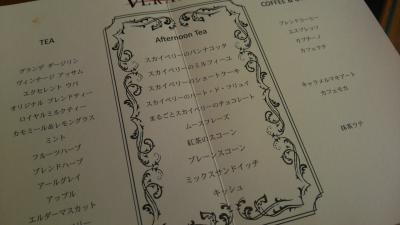 TEA
グランデ ダージリン
ヴィンテージ アッサム
エクセレント ウバ
オリジナル ブレンドティー
ロイヤルミルクティー
カモミール＆レモングラス
ミント
フルーツハーブ
ブレンドハーブ
アールグレイ
アップル
エルダーマスカット
Afternoon Tea
スカイベリーのパンナコッタ
スカイベリーのミルフィーユ
スカイベリーのショートケーキ
スカイベリーのパート・ド・フリュイ
まるごとスカイベリーのチョコレート
ムースフレーズ
紅茶のスコーン
プレーンスコーン
ミックスサンドイッチ
キッシュ
COFFEE &
ブレンドコーヒー
エスプレッソ
カプチーノ
カフェラテ
キャラメルマキアート
カフェモカ
抹茶ラテ